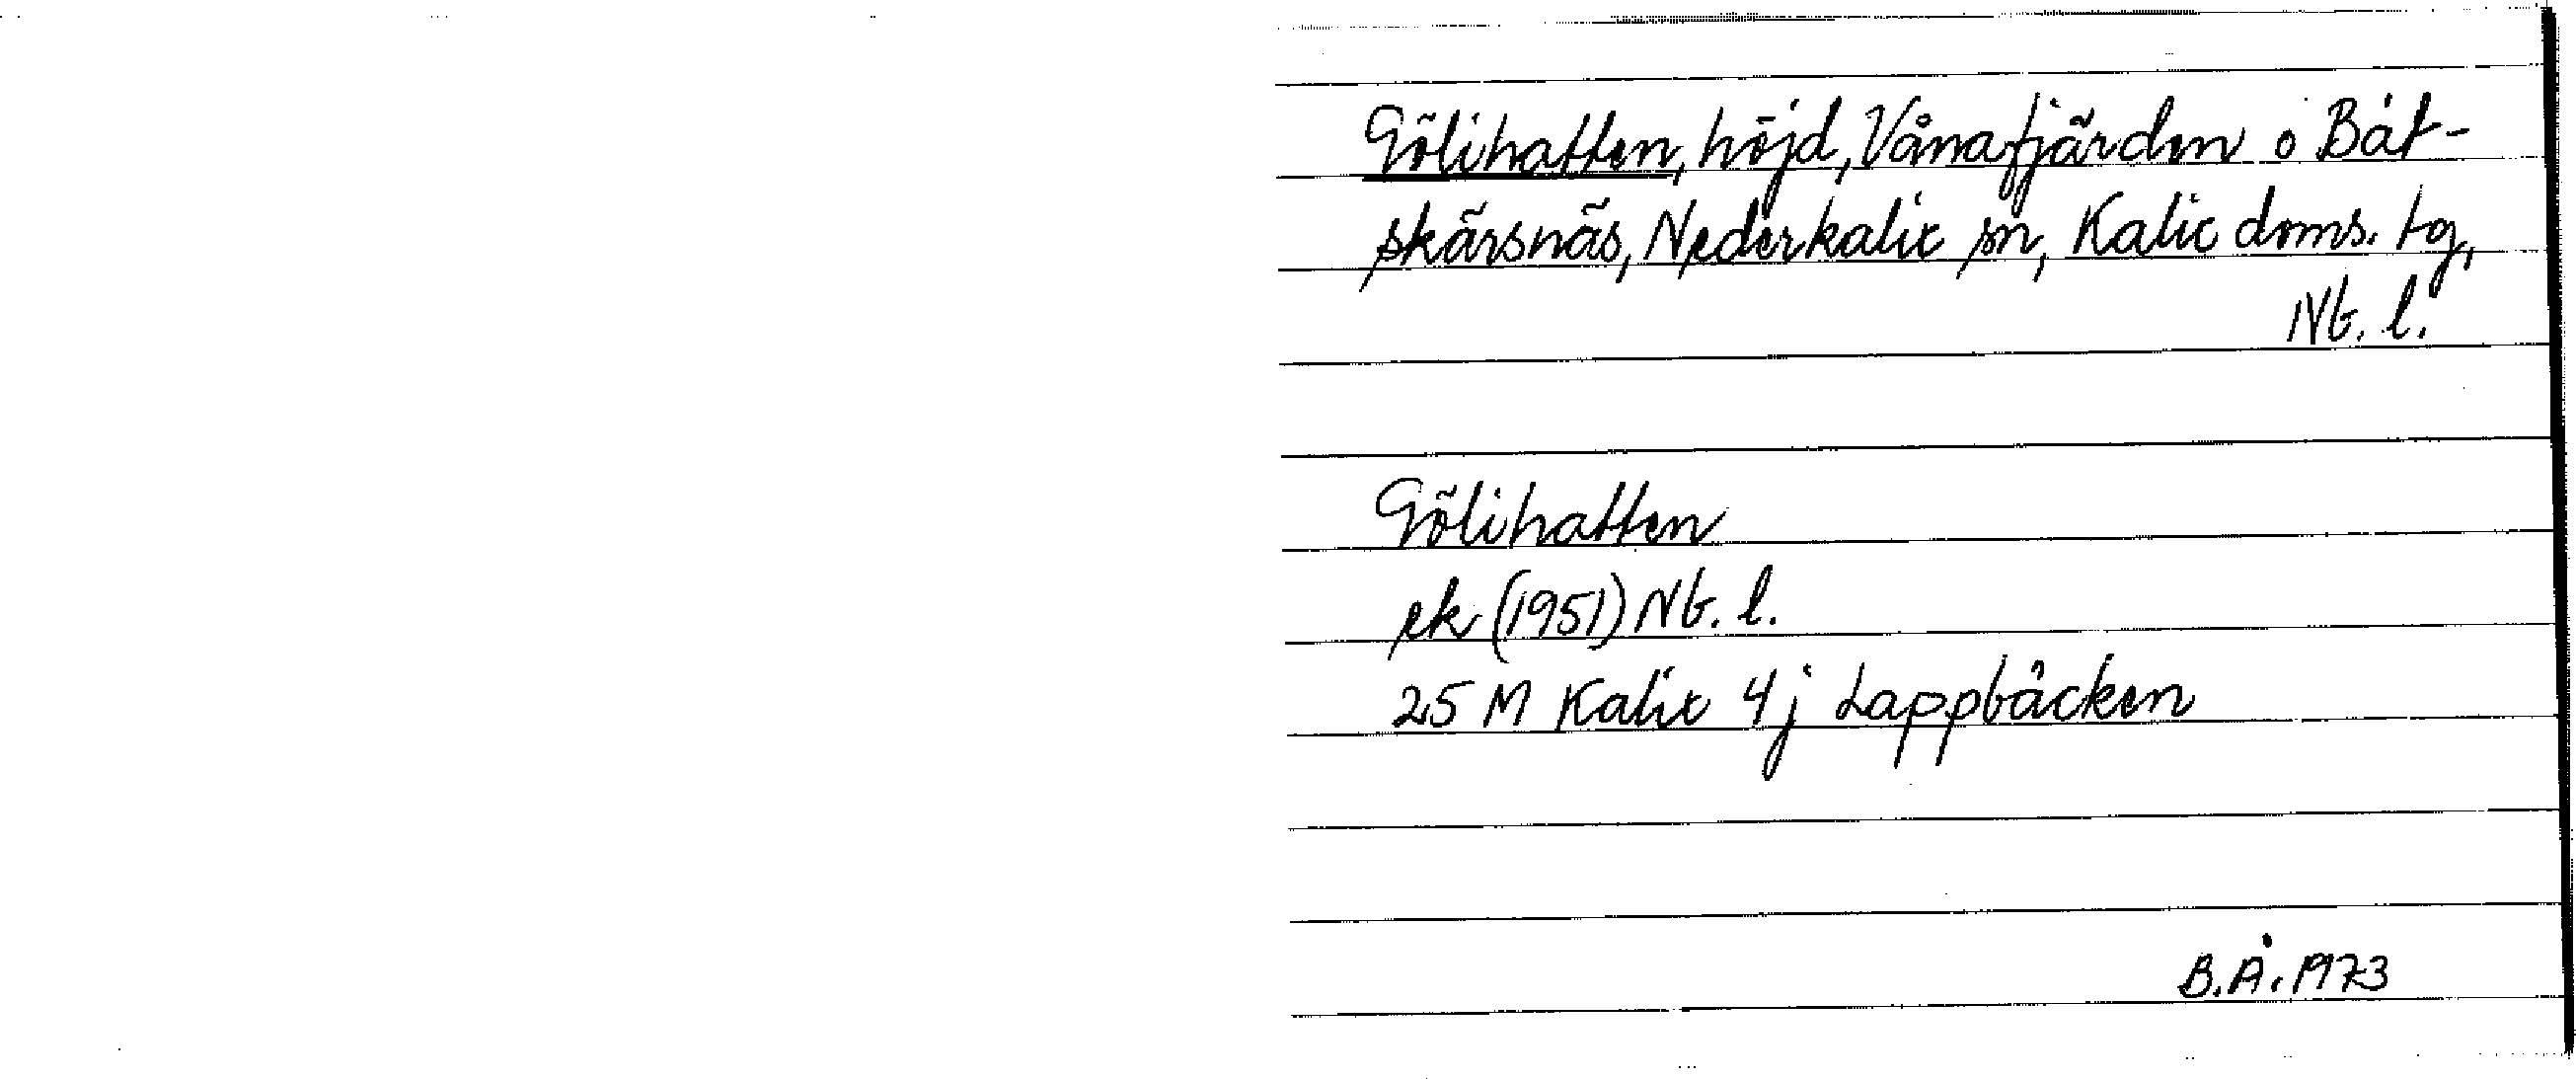 Gölihatten, höjd, Vånafjärden o Båt-
skärsnäs, Nederkalix sn, Kalix doms. tg,
Nb. l.
Gölihatten
ek (1951) Nb. l.
25 M Kalix 4 j Lappbäcken
B.Å. 1973